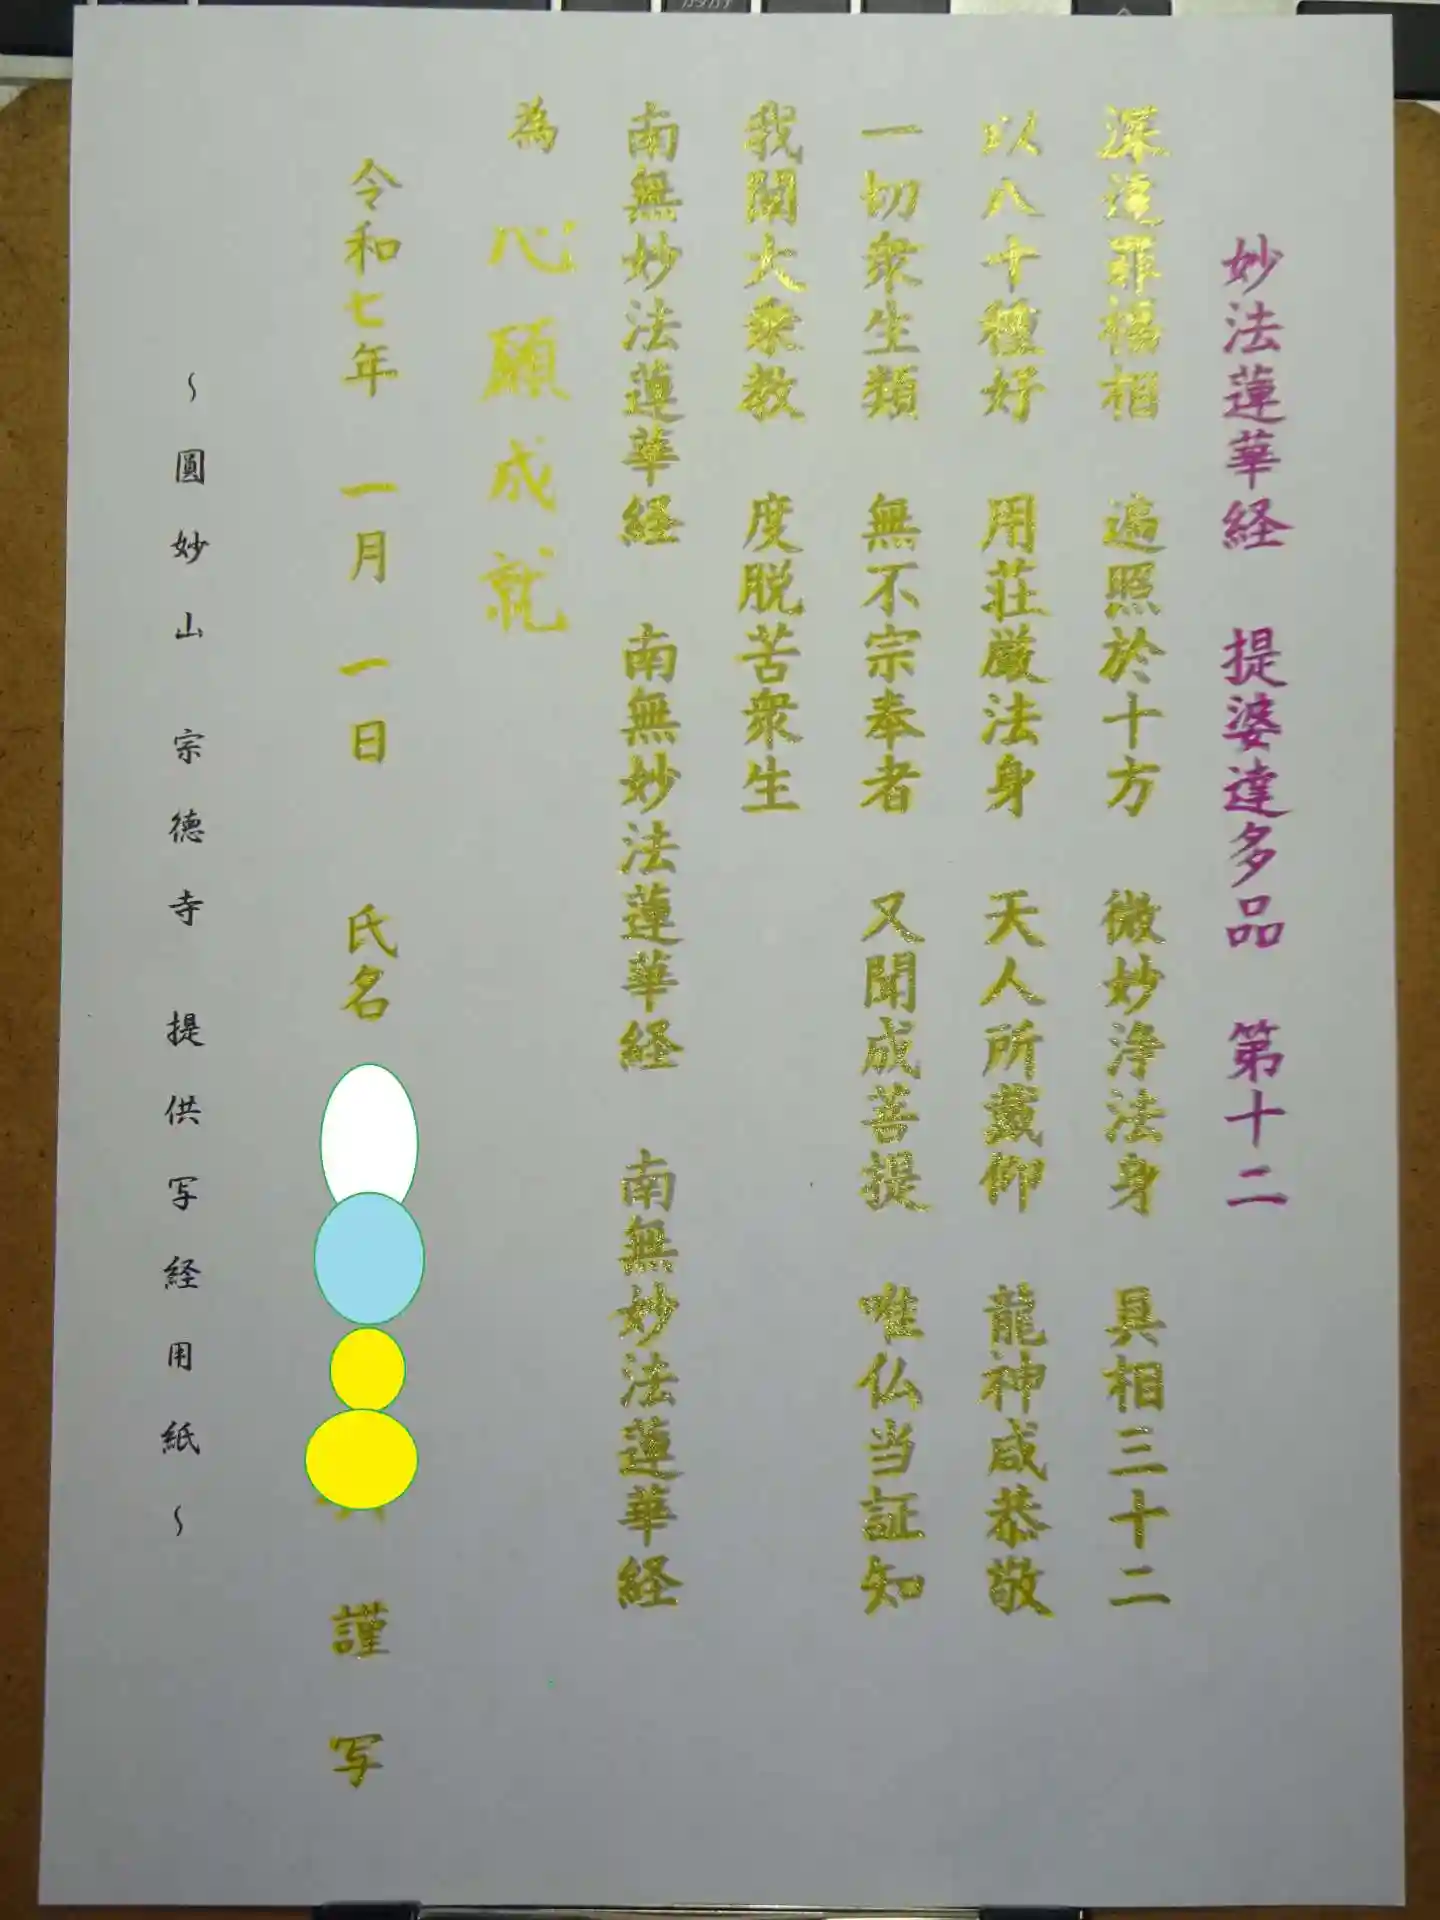 妙法蓮華経　提婆達多品　第十二
深達罪福相　遍照於十方　微妙浄法身　具相三十二
以八十種好　用荘厳法身　天人所戴仰　龍神咸恭敬
一切衆生類　無不宗奉者　又聞成菩提　唯仏当証知
我闡大乗教　度脱苦衆生
南無妙法蓮華経　南無妙法蓮華経　南無妙法蓮華経
為　心願成就
令和七年　一月　一日　氏名　謹写
～圓妙山　宗徳寺　提供写経用紙～